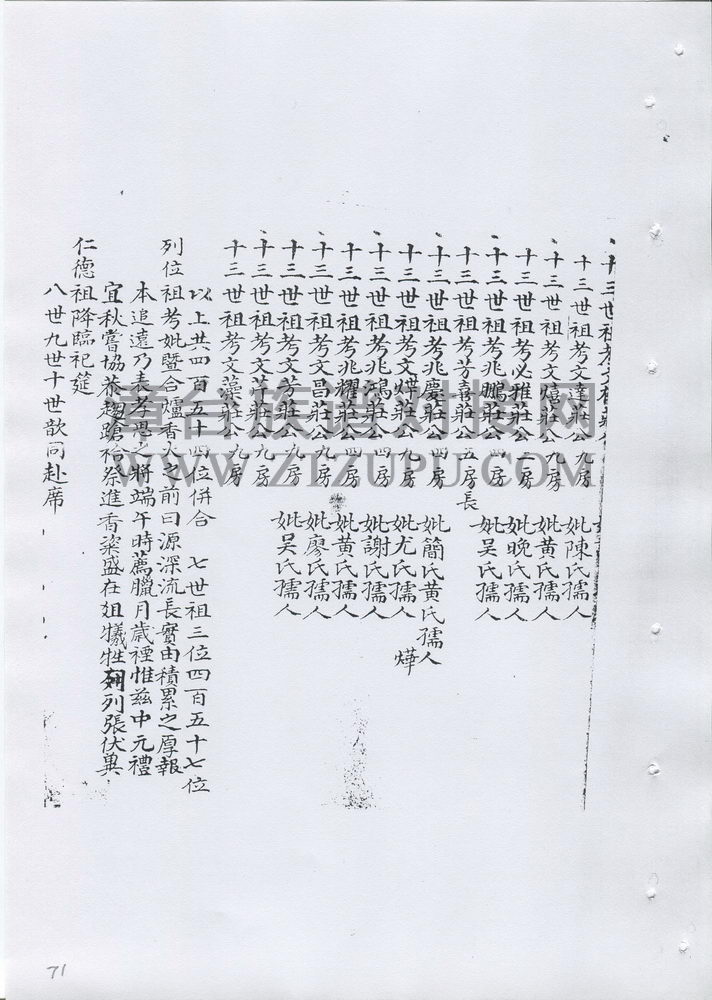 十三世祖考文
十三世祖考文達莊公九房 妣陳氏孺人
十三世祖考文熺莊公九房 妣黃氏孺人
十三世祖考必雅莊公二房 妣晚氏孺人
十三世祖考兆鵬莊公四房 妣吴氏孺人
十三世祖考芳喜莊公五房長
十三世祖考兆慶莊公四房 妣簡氏黃氏孺人
十三世祖考文燁莊公九房 妣尤氏孺人 燁
十三世祖考兆鴻莊公四房 妣謝氏孺人
十三世祖考兆耀莊公四房 妣黃氏孺人
十三世祖考文昌莊公九房 妣廖氏孺人
十三世祖考文芳莊公九房 妣吴氏孺人
十三世祖考文莊公九房
十三世祖考文藻莊公九房
以上共四百五十四位併合 七世祖三位四百五十七位
列位祖考妣暨合爐香火之前曰源深流長實由積累之厚報
本追遠乃表孝思之將端午時薦臘月歲禋惟兹中元禮
宜秋嘗協恭趨蹌祫祭進香粢盛在俎犧牲列張伏冀
仁德祖降臨祀筵
八世九世十世歆同赴席
南台族谱对接网
WWW.ZIZUPU.COM
71